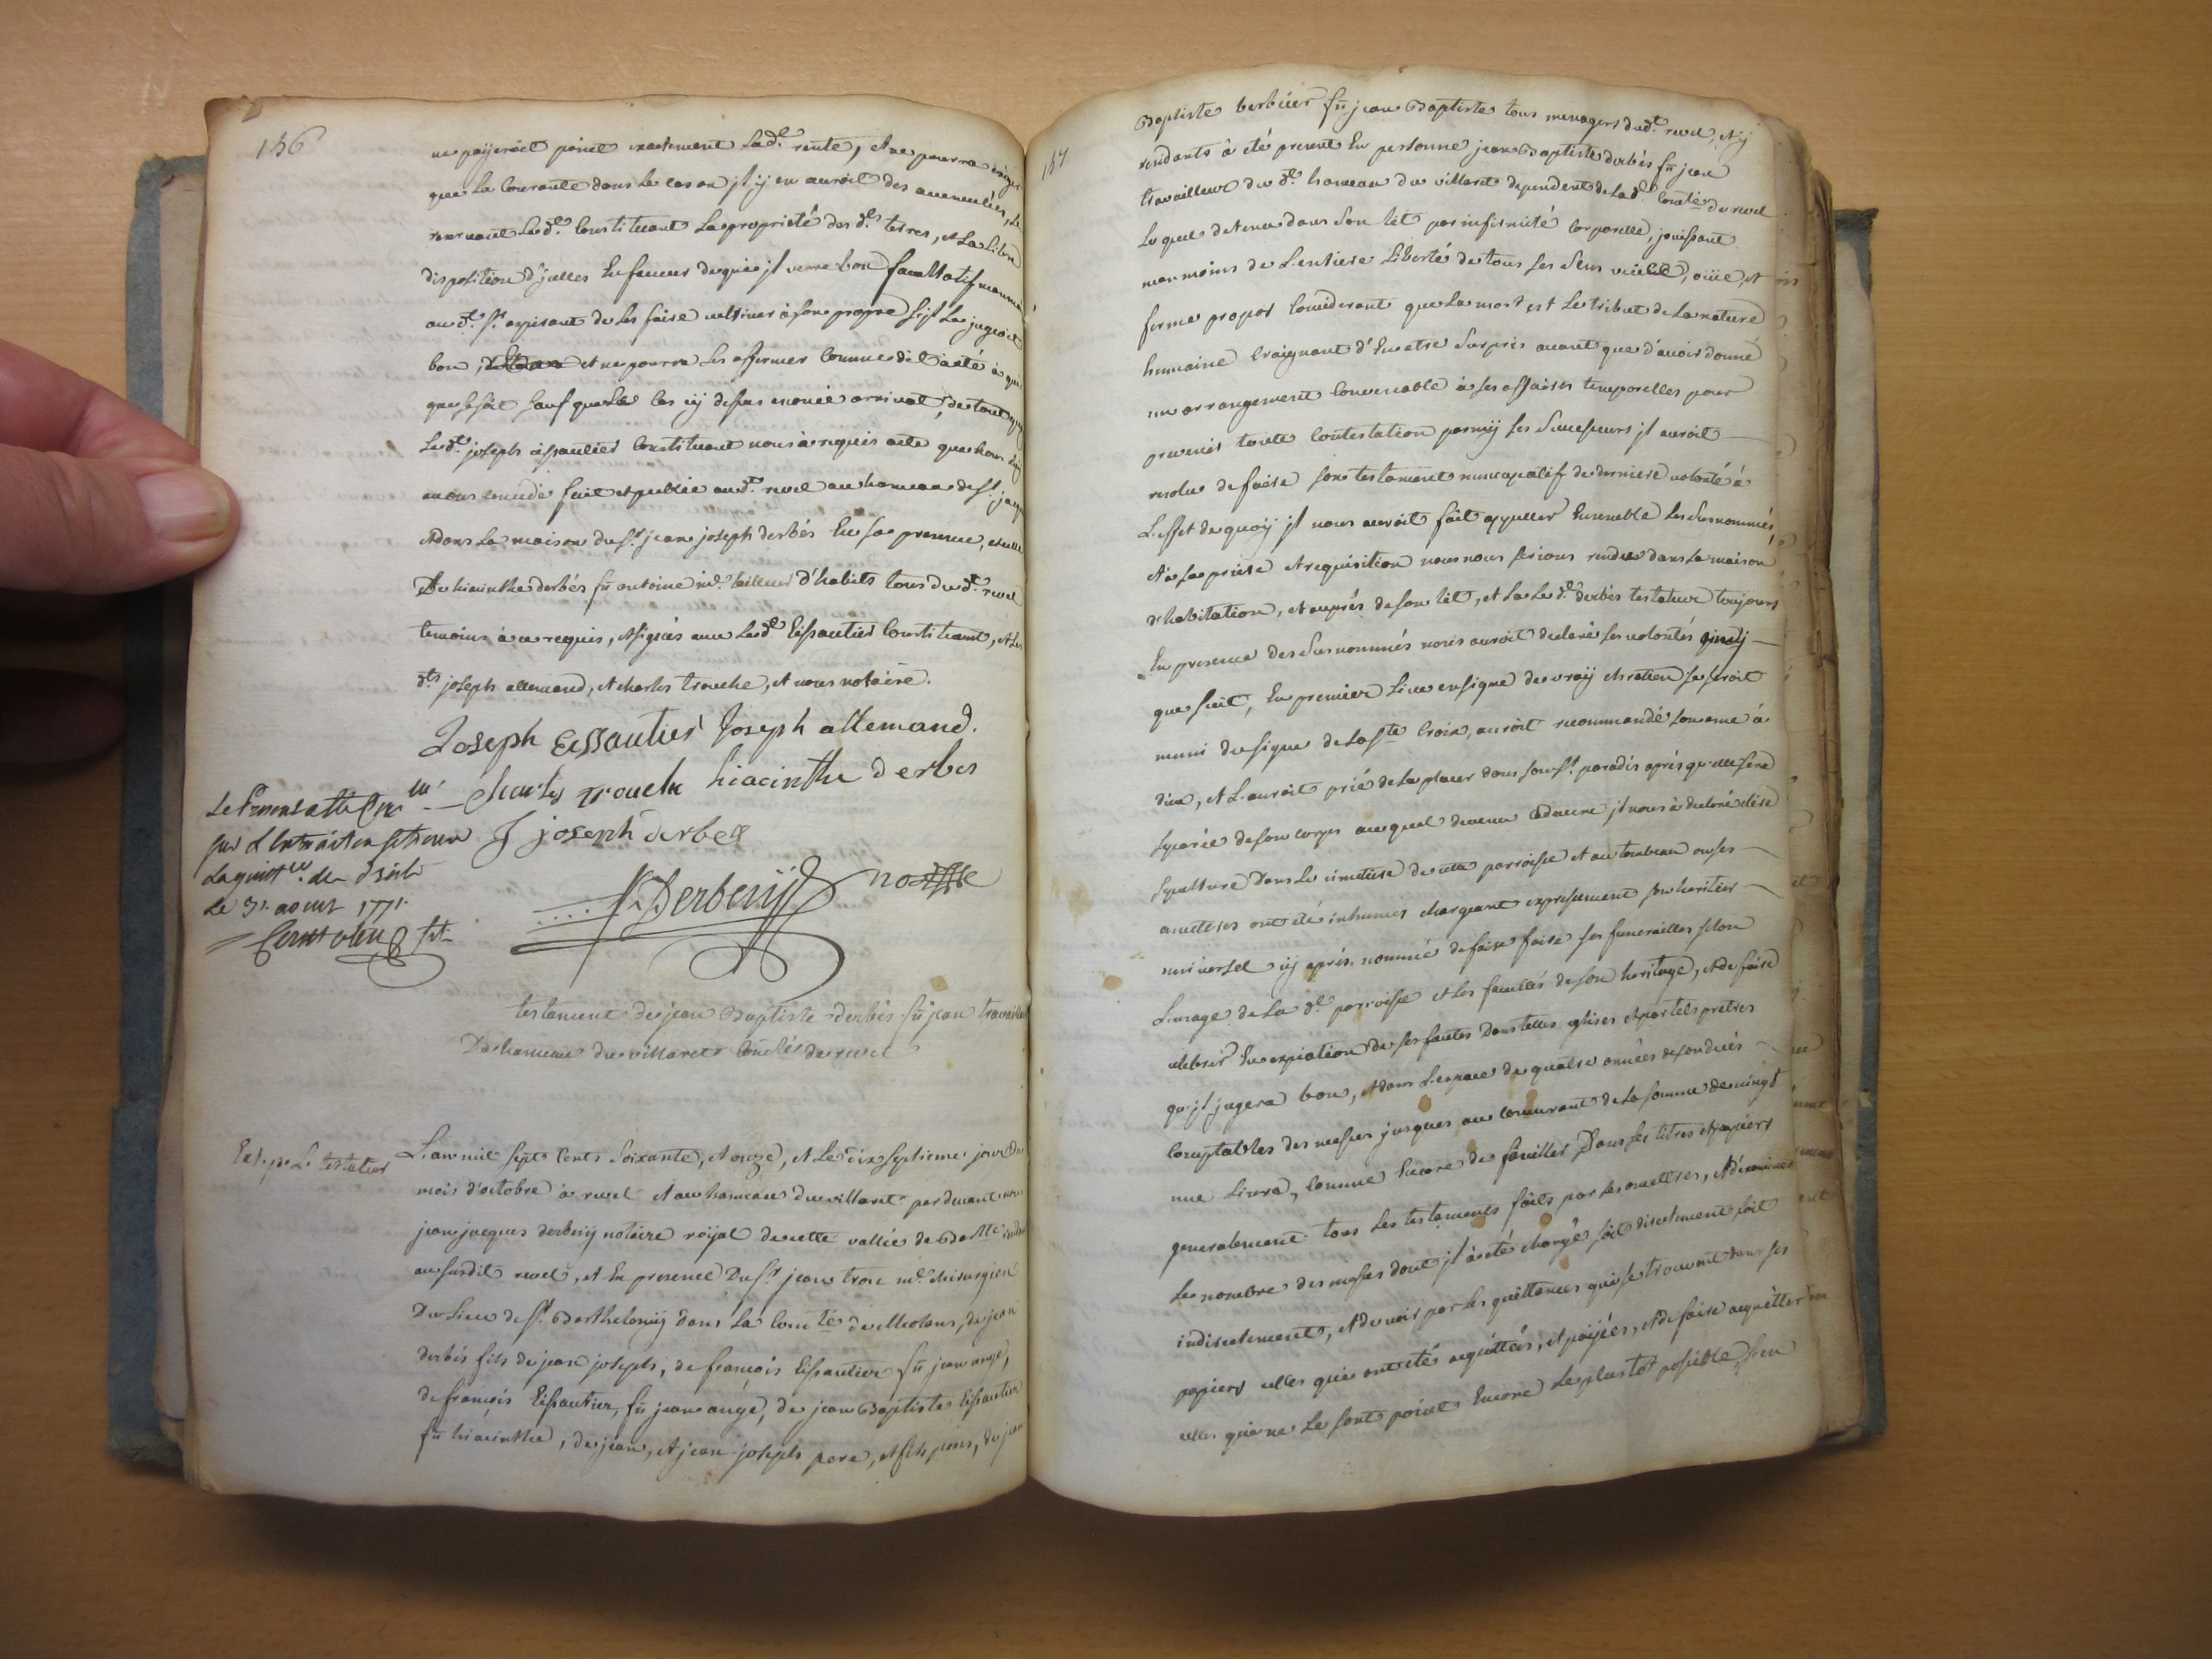 156
ne payeroit point exactement lad.e rente, et ne pourra exiger
que la courante dans le cas ou jl ÿ en auroit des accumulées, se
reservant led.t constituant la proprieté des d.es terres, et la libre
disposition d'jcelles en faveur de qui jl verra bon facultatif neanmoins
au d.t s.r de les faire cultiver à son propre s'jl le jugeoit
bon, et ne pourra les affermer comme dit a été à qui
que se soit sauf que le cas cÿ dessus enoncé arrivat, de tout quoy
led.t joseph eissautier constituant nous à requis acte que nous luÿ
avons concedé fait et publié aud.t revel au hameau de s.t jacques
et dans la maison du s.r jean joseph derbés en sa presence, et celle
De hiacinthe derbés fû antoine m.e tailleur d'habits tous dud.t revel
temoins à ce requis, et signés avec led.t Eissautier constituant, et les
d.ts joseph allemand, et charles trouche, et nous notaire.
Joseph Eissautier Joseph allemand.
charles trouche hiacinthe derbes
J joseph derbes
Derbenÿ no.re
sur L'extrait
Le 31. aoust 1771.
testament de jean Baptiste derbés fû jean travailleur
Du hameau du villaret comté de revel
Ext. p.r Le testateur
L'an mil sept cents soixante, et onze, et le dix septieme jour du
mois d'octobre à revel et au hameau du villaret pardevant nous
jean jacques derbenÿ notaire roÿal de cette vallée de
au susdit revel, et en presence Du s.r jean tron m.e chirurgien
Du Lieu de s.t Barthelemÿ dans la comté de Meolans, de jean
derbés fils de jean joseph, de françois Eissautier fû jean ange,
de françois Eissautier, fû jean ange, de jean Baptiste Eissautier
fû hiacinthe, de jean, et jean joseph pere, et fils pons, de jean
157
Baptiste berbuer fû jean Baptiste tous menagers dud.t revel, et ÿ
residants à été present en personne jean Baptiste derbés fû jean
travailleur du d.t hameau du villaret dependent de lad.e comté de revel
Lequel detenu dans son lit par infirmité corporelle, jouissant
neanmoins de l'entiere liberté de tous ses sens ouïe, et
ferme propos considerant que la mort est le tribut de la nature
humaine craignant d'en etre surpris avant que d'avoir donné
un arrangement convenable à ses affaires temporelles pour
prevenir toute contestation parmÿ ses successeurs jl auroit
resolu de faire son testament nuncupatif de derniere volonté à
L'effet de quoÿ jl nous auroit fait appeller ensemble les susnommés,
et à sa priere et requisition nous nous serions rendus dans la maison
d'habitation, et auprés de son lit, et la led.t derbés testateur toujours
En presence des susnommés nous auroit declaré ses volontés ainsÿ
que suit, En premier lieu en signe de vraÿ chretien se seroit
muni du signe de la s.te Croix, auroit recommandé son ame à
dieu, et l'auroit prié de la placer dans son s.t paradis aprés qu'elle sera
separée de son corps auquel devenu cadavre jl nous à declaré elire
sepulture Dans le cimetiere de cette parroisse et au tombeau ou ses
ancetres ont été inhumés chargeant expressement son heritier
universel cÿ aprés nommé de faire faire ses funerailles selon
L'usage de la d.e parroisse et les facultés de son heritage, et de faire
celebrer En expiation de ses fautes Dans telles eglises et par tels pretres
qu'jl jugera bon, et dans l'espace de quatre années de son decés
comptables des messes jusques au concurrent de la somme de vingt
une Livre, comme Encore de fouiller Dans les titres et papiers
generalement tous les testaments faits par les ancetres, et d'examiner
le nombre des messes dont jl à été chargé soit discretement soit
indiscretement, et de voir par les quittances qui se trouvent dans ses
papiers celles qui ont été acquittées, et paÿées, et de faire acquitter
celles qui ne le sont point Encore le plus tot possible, s'en